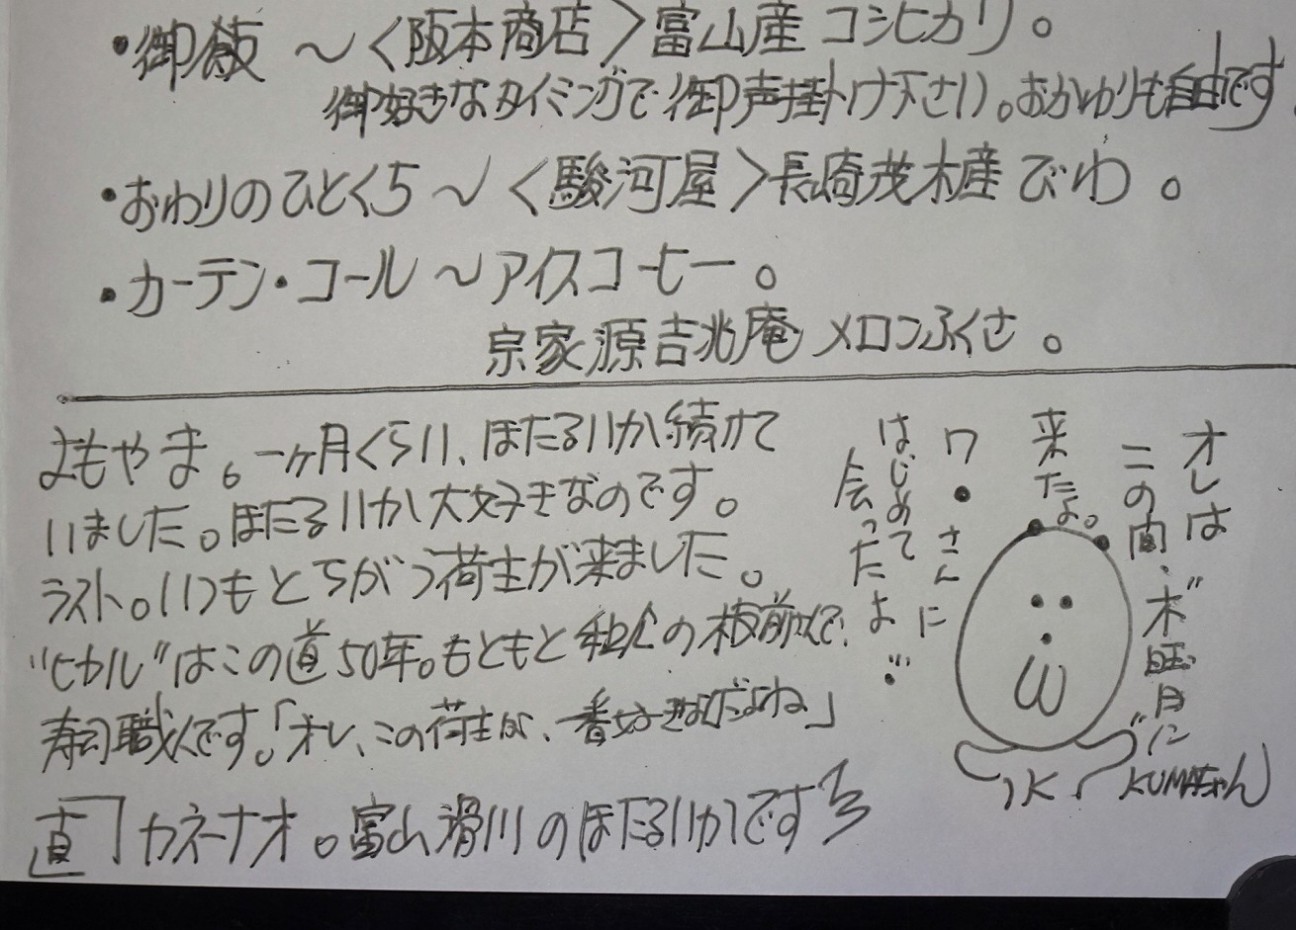 ・御飯 〜〈阪本商店〉富山産 コシヒカリ。
御好きなタイミングで御声掛け下さい。おかわりも自由です。
・おわりのひとくち 〜〈駿河屋〉長崎茂木産 びわ。
・カーテン・コール 〜アイスコーヒー。
宗家 源吉兆庵 メロンふくさ。
よもやま。一ヶ月くらい、ほたるいか続けて
いました。ほたるいか大好きなのです。
ラスト。いつもとちがう荷主が来ました。
"ヒカル"はこの道50年。もともと私の板前で、
寿司職人です。「オレ、この荷主が、一番好きなんだよね」
直 カネナオ。富山滑川のほたるいかです
オレは
この間、"木旺月"に
来たよ。
ワ・さんに
はじめて
会ったよ
KUMAちゃん